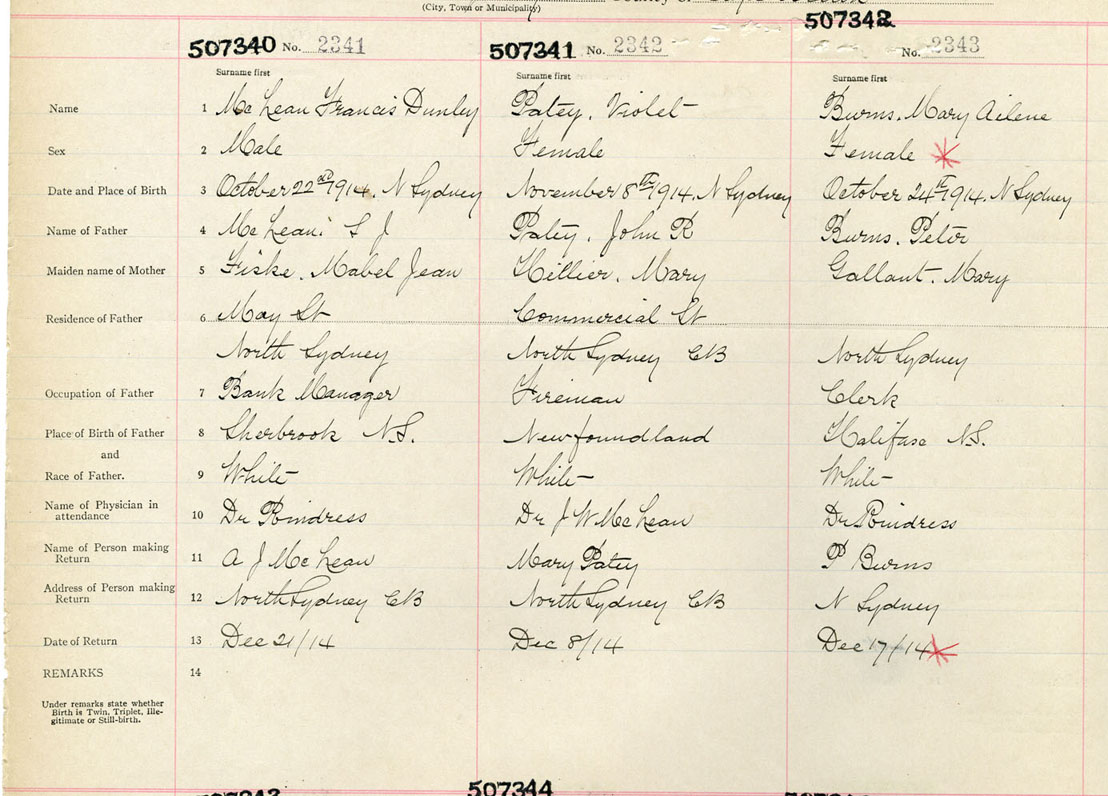 (City, Town or Municipality)
507340 No. 2341 507341 No. 2342 507342 No. 2343
Surname first Surname first Surname first
Name 1 McLean Francis Dunley Patey, Violet Burns, Mary Ailene
Sex 2 Male Female Female
Date and Place of Birth 3 October 22nd 1914. N Sydney November 8th 1914. N Sydney October 24th 1914. N Sydney
Name of Father 4 McLean: S J Patey, John R Burns, Peter
Maiden name of Mother 5 Fiske, Mabel Jean Hillier, Mary Gallant, Mary
Residence of Father 6 May St Commercial St
North Sydney North Sydney CB North Sydney
Occupation of Father 7 Bank Manager Fireman Clerk
Place of Birth of Father 8 Sherbrook N.S. Newfoundland Halifax N.S.
and
Race of Father. 9 White White White
Name of Physician in
attendance 10 Dr Poindress Dr J W McLean Dr Poindress
Name of Person making
Return 11 A J McLean Mary Patey P Burns
Address of Person making
Return 12 North Sydney CB North Sydney CB N Sydney
Date of Return 13 Dec 21/14 Dec 8/14 Dec 17/14
REMARKS 14
Under remarks state whether
Birth is Twin, Triplet, Ille-
gitimate or Still-birth.
507344